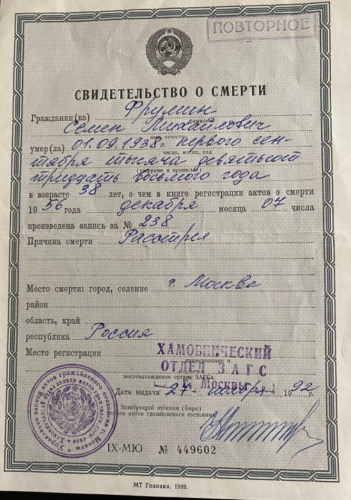 ПОВТОРНОЕ
СВИДЕТЕЛЬСТВО О СМЕРТИ
Гражданин(ка) Фрумин
фамилия
Семен Михайлович
имя, отчество
умер(ла) 01.09.1938г первого сен-
число, месяц, год
тября тысяча девятьсот
тридцать восьмого года
в возрасте 38 лет, о чем в книге регистрации актов о смерти
1956 года декабря месяца 07 числа
произведена запись за № 238
Причина смерти Расстрел
Место смерти: город, селение г. Москва
район
область, край
республика Россия
Место регистрации ХАМОВНИЧЕСКИЙ
ОТДЕЛ ЗАГС
г. Москвы
Дата выдачи 27 1992 г.
Заведующий отделом (бюро)
записи актов гражданского состояния
IX-МЮ № 449602
МТ Гознака. 1989.